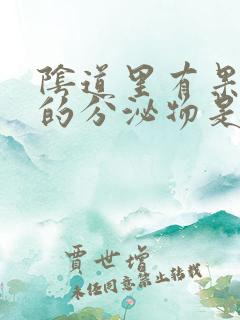 陰道里有果
的分泌物是
賈世增
未经同意禁止转载